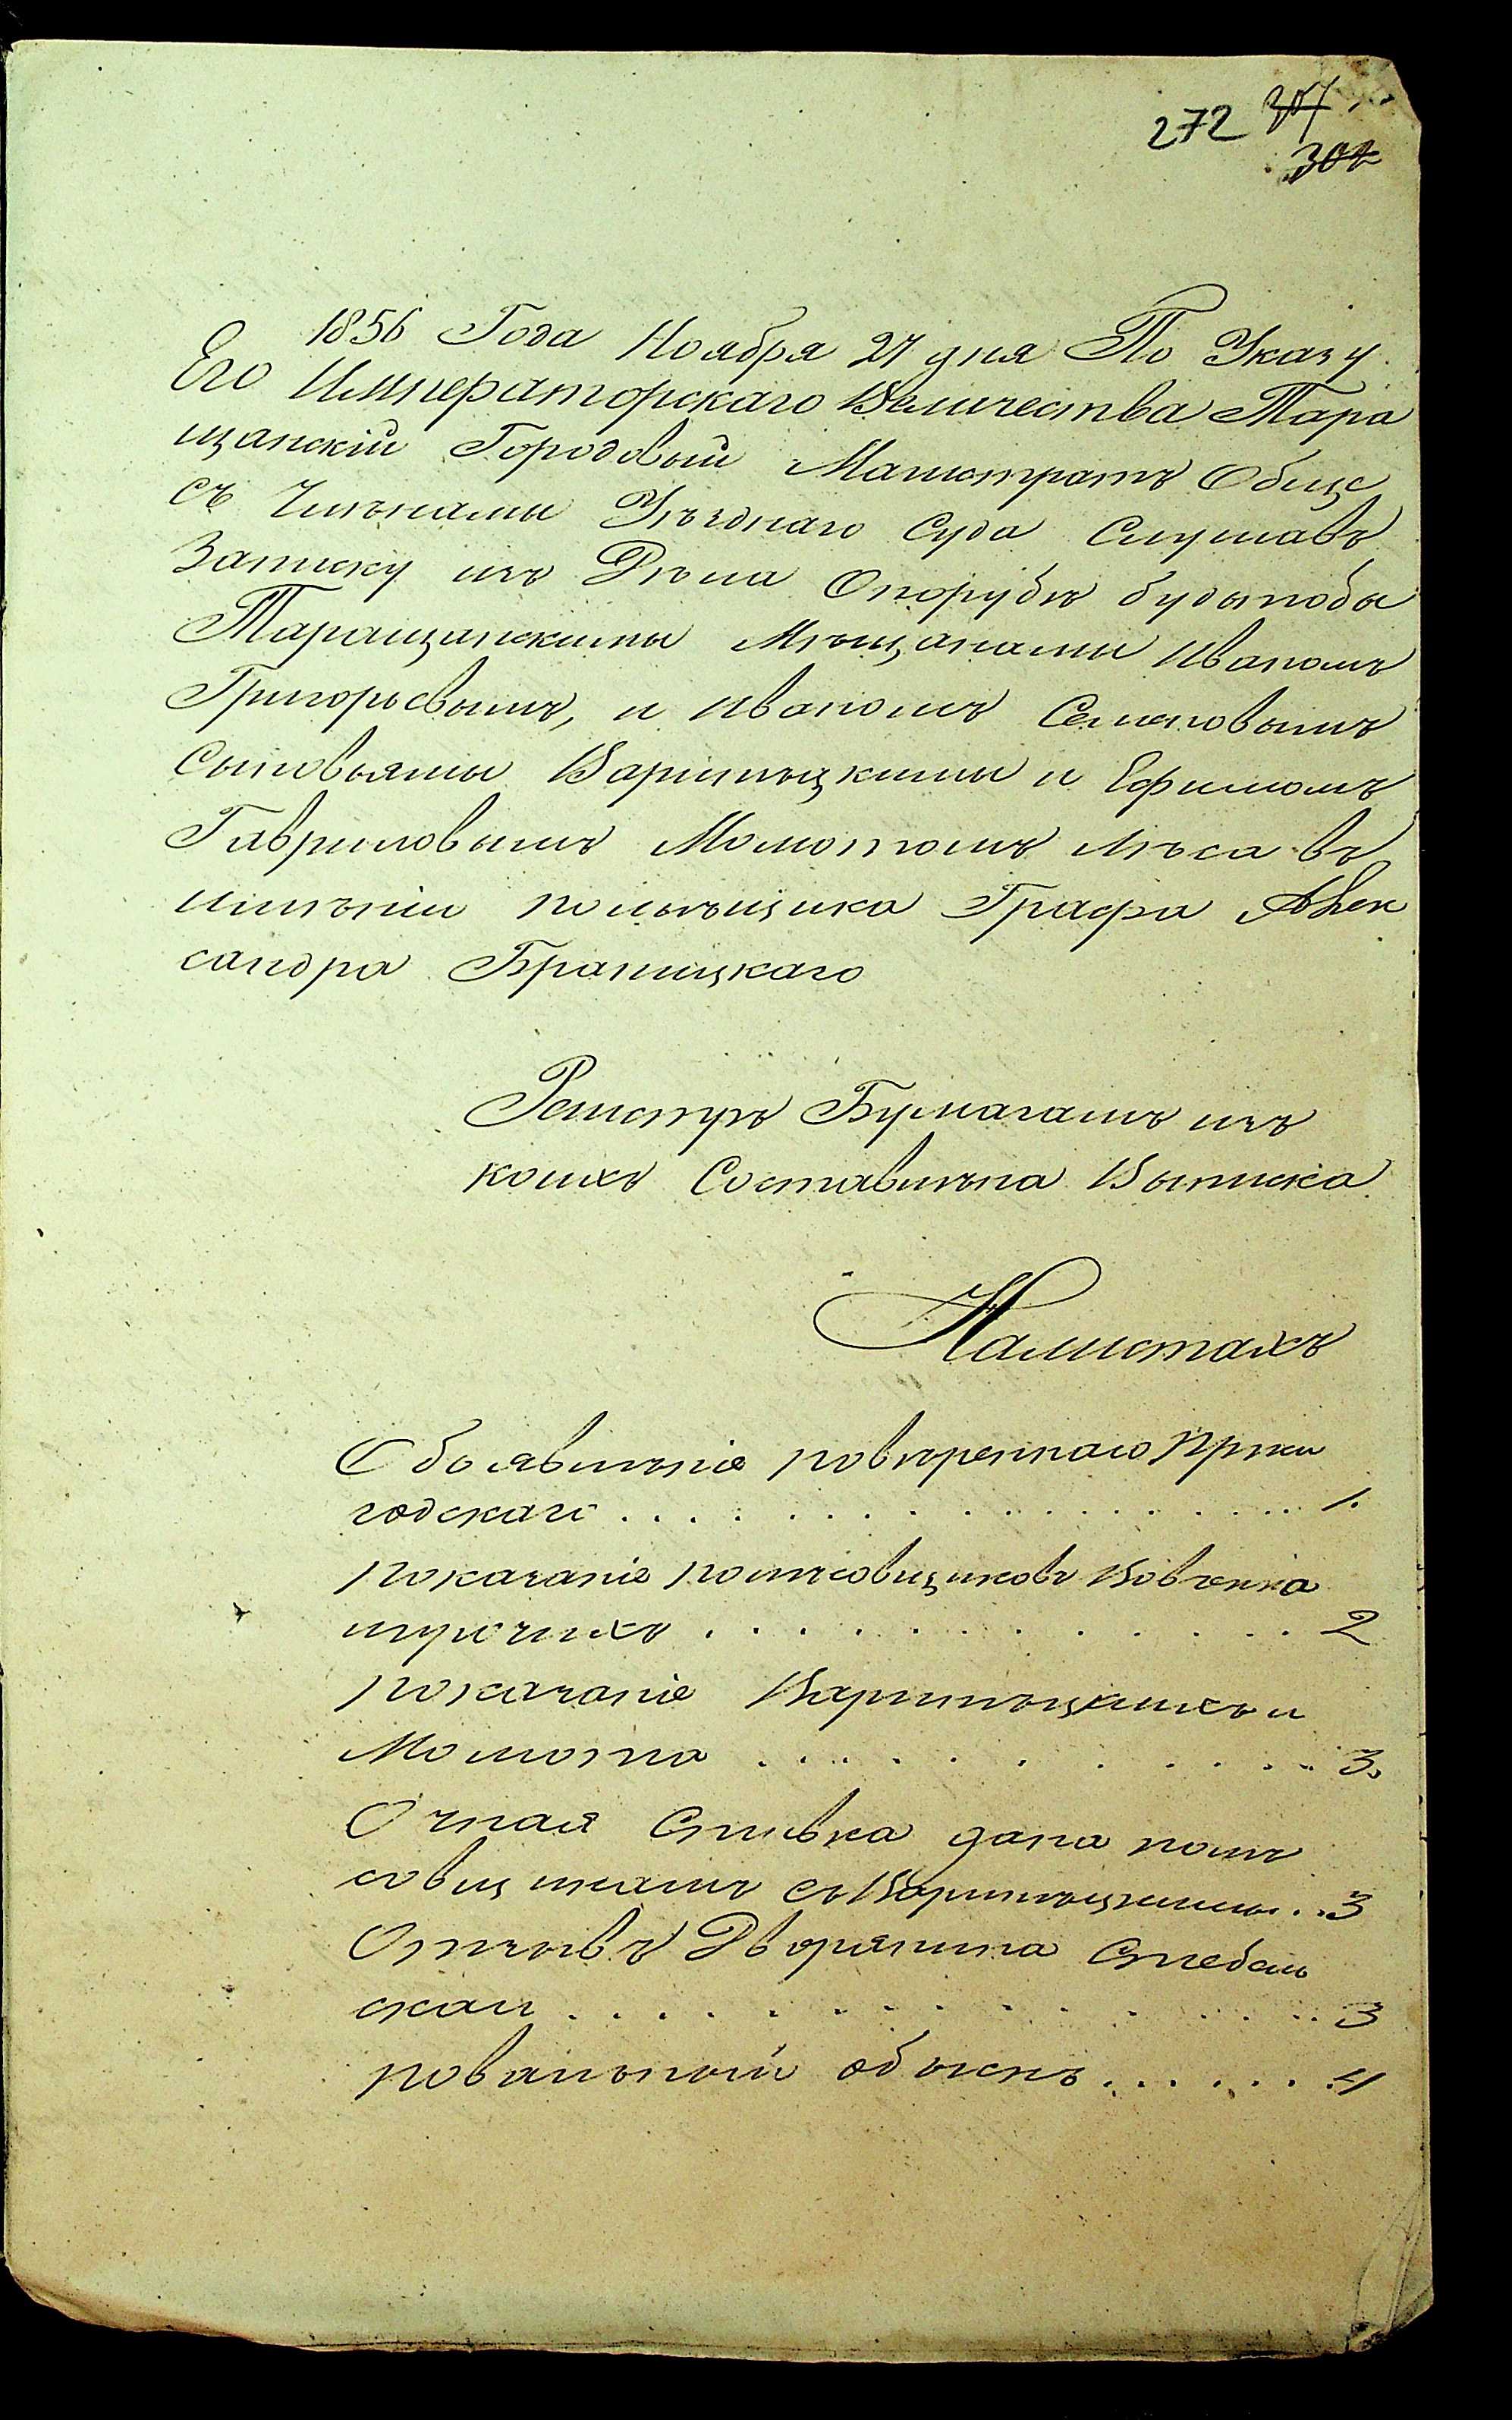 272 307
302
1856 Года Ноября 27 дня По Указу
Его Императорскаго Величества Тара
щанскій Городовый Магистратъ Обще
съ Членами Уѣзднаго Суда Слушавъ
Записку изъ Дѣла Опорубкѣ будьтобы
Таращанскими Мѣщанами Иваномъ
Григорьевымъ, и Иваномъ Семеновымъ
Сыновьями Вариницкими и Ефимомъ
Гавриловымъ Момотомъ лѣса въ
имѣніи помѣщика Графа Алек
сандра Браницкаго
Реистръ Бумагамъ изъ
коихъ Составлѣна Выписка
Налистахъ
Объявлѣніе повѣреннаго
годскаго 1.
показаніе полѣсовщиковъ Вовченка
ипрочихъ 2
показаніе Вариницкихъ и
Момота 3.
Очная Ставка дана полѣ
совщикамъ съ Вариницкими 3
Отзывъ Дворянина
3
повальный обыскъ 4